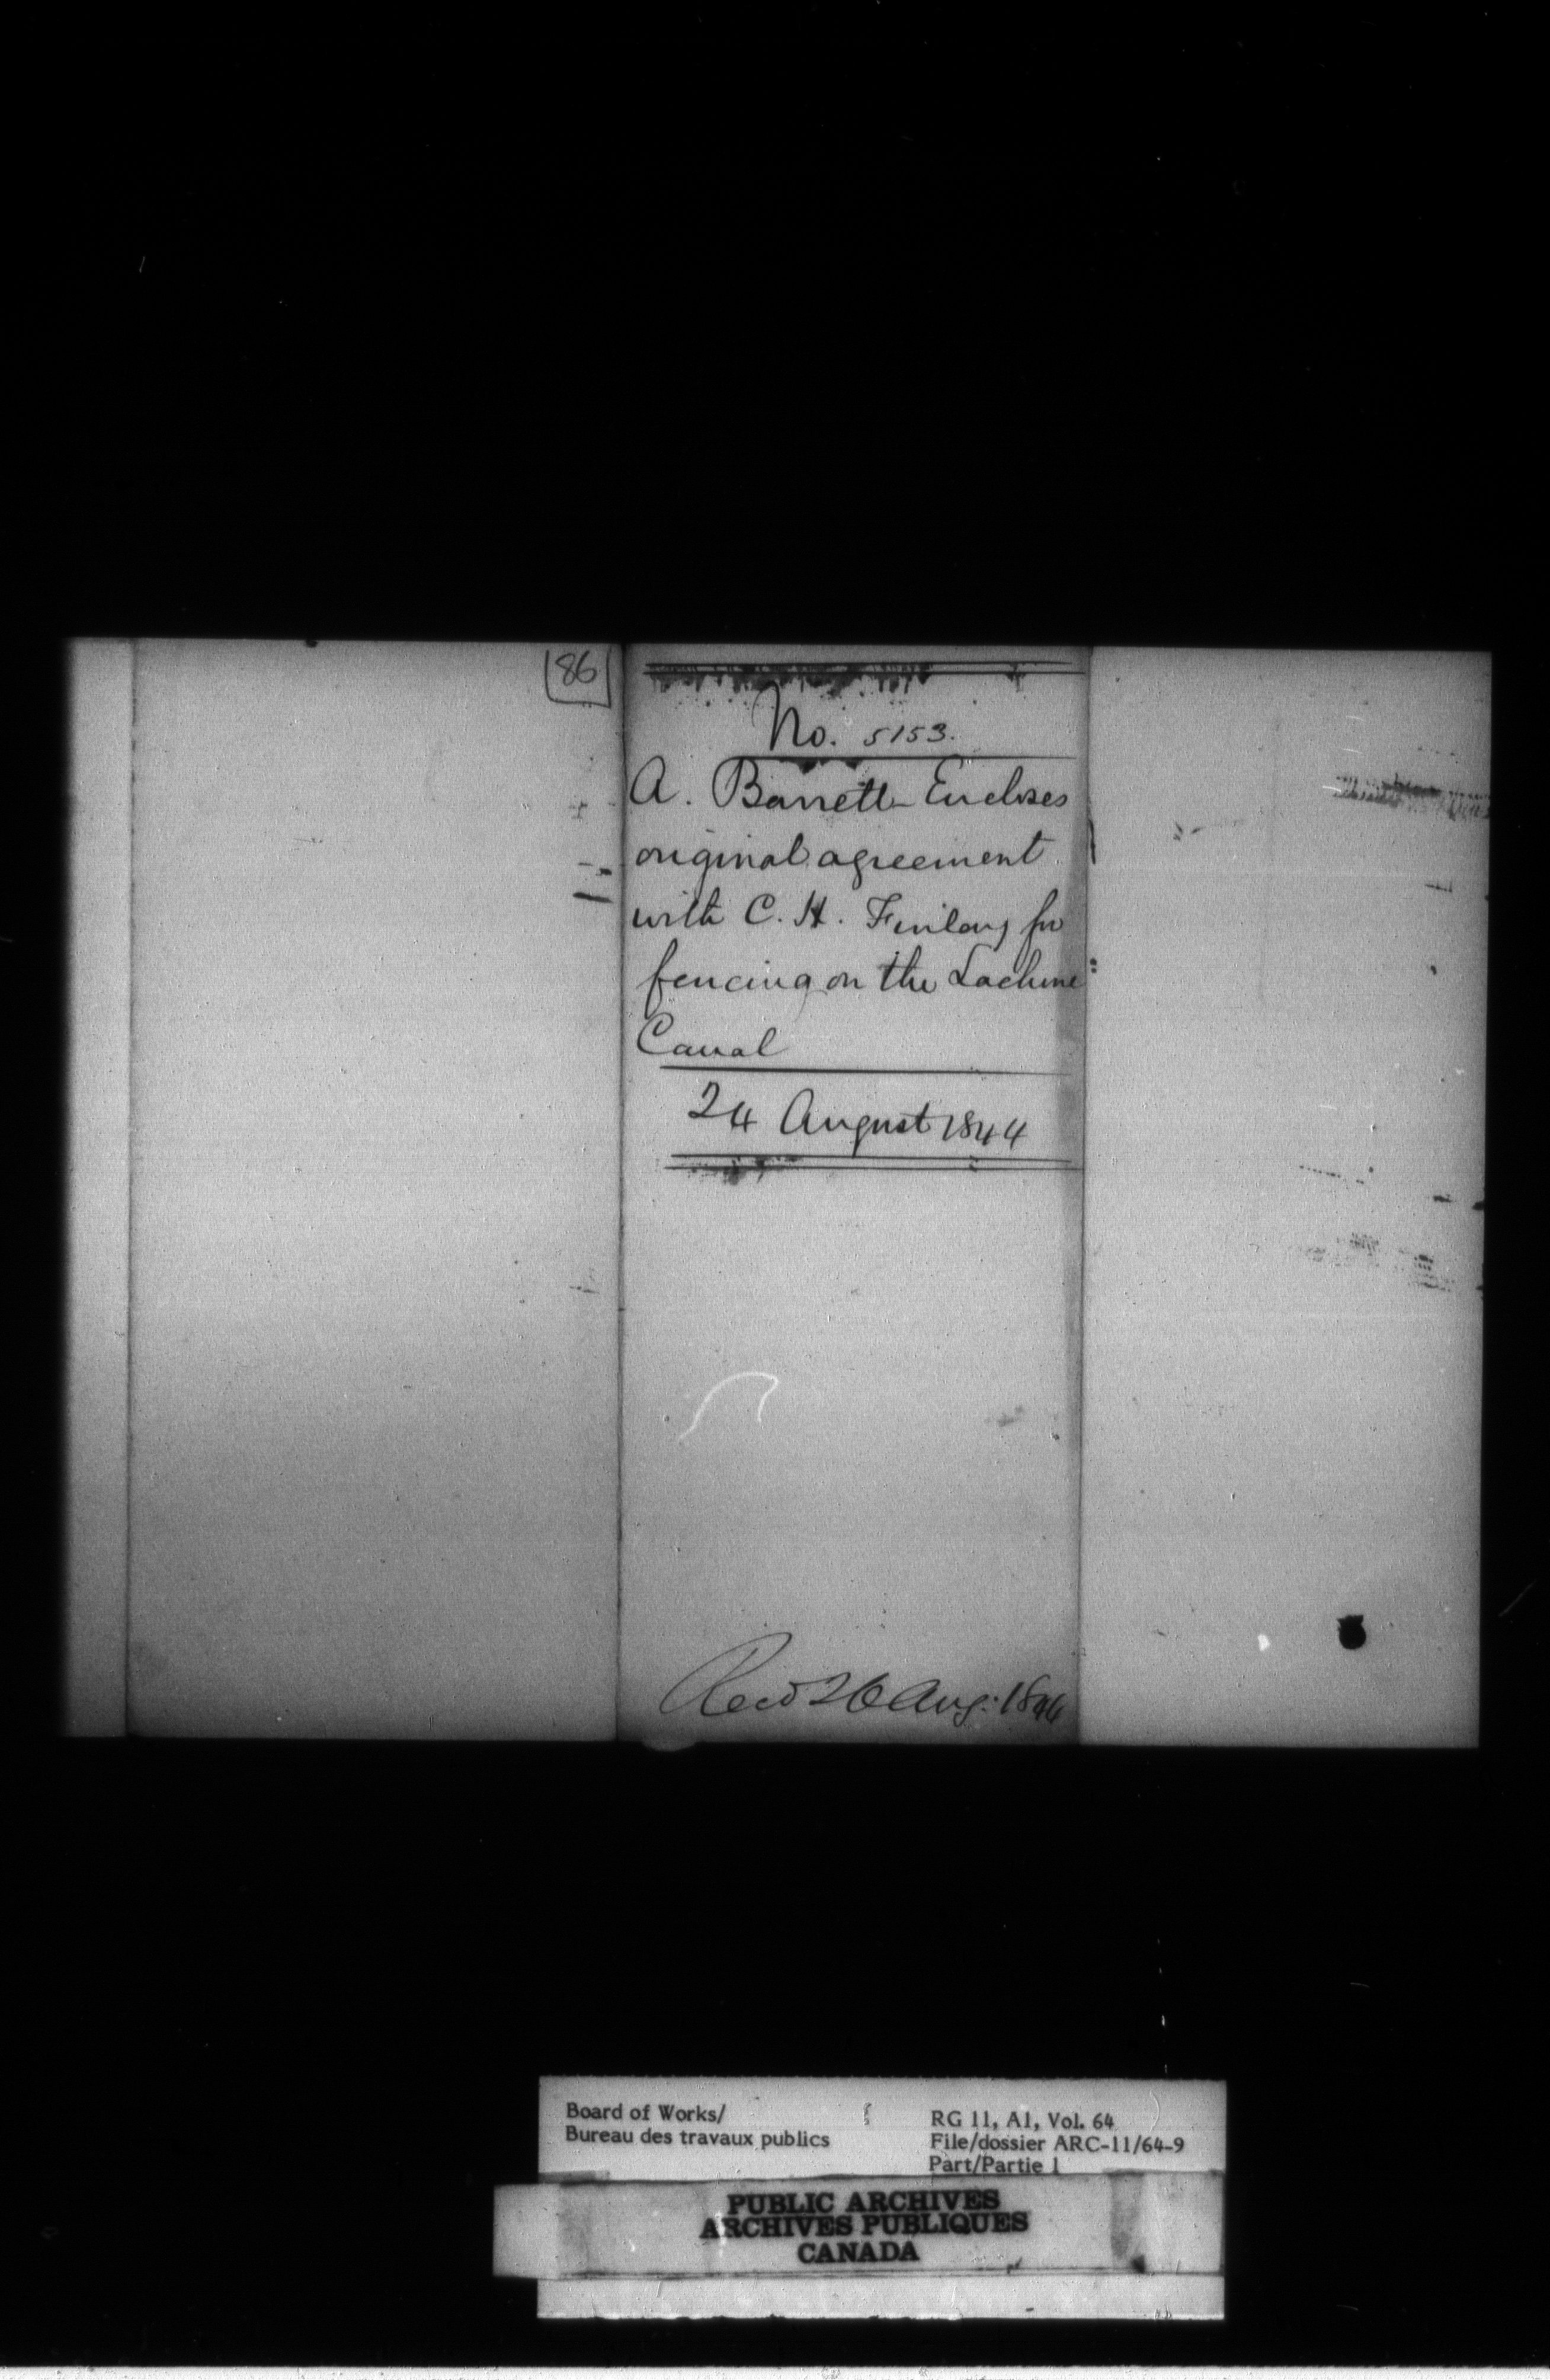 86
No. 5153.
A. Barrett Encloses
original agreement
with C. H. Finlay for
fencing on the Lachine
Canal
24 August 1844
Recd 26 Aug: 1844
Board of Works/
Bureau des travaux publics
RG 11, A1, Vol. 64
File/dossier ARC-11/64-9
Part/Partie 1
PUBLIC ARCHIVES
ARCHIVES PUBLIQUES
CANADA